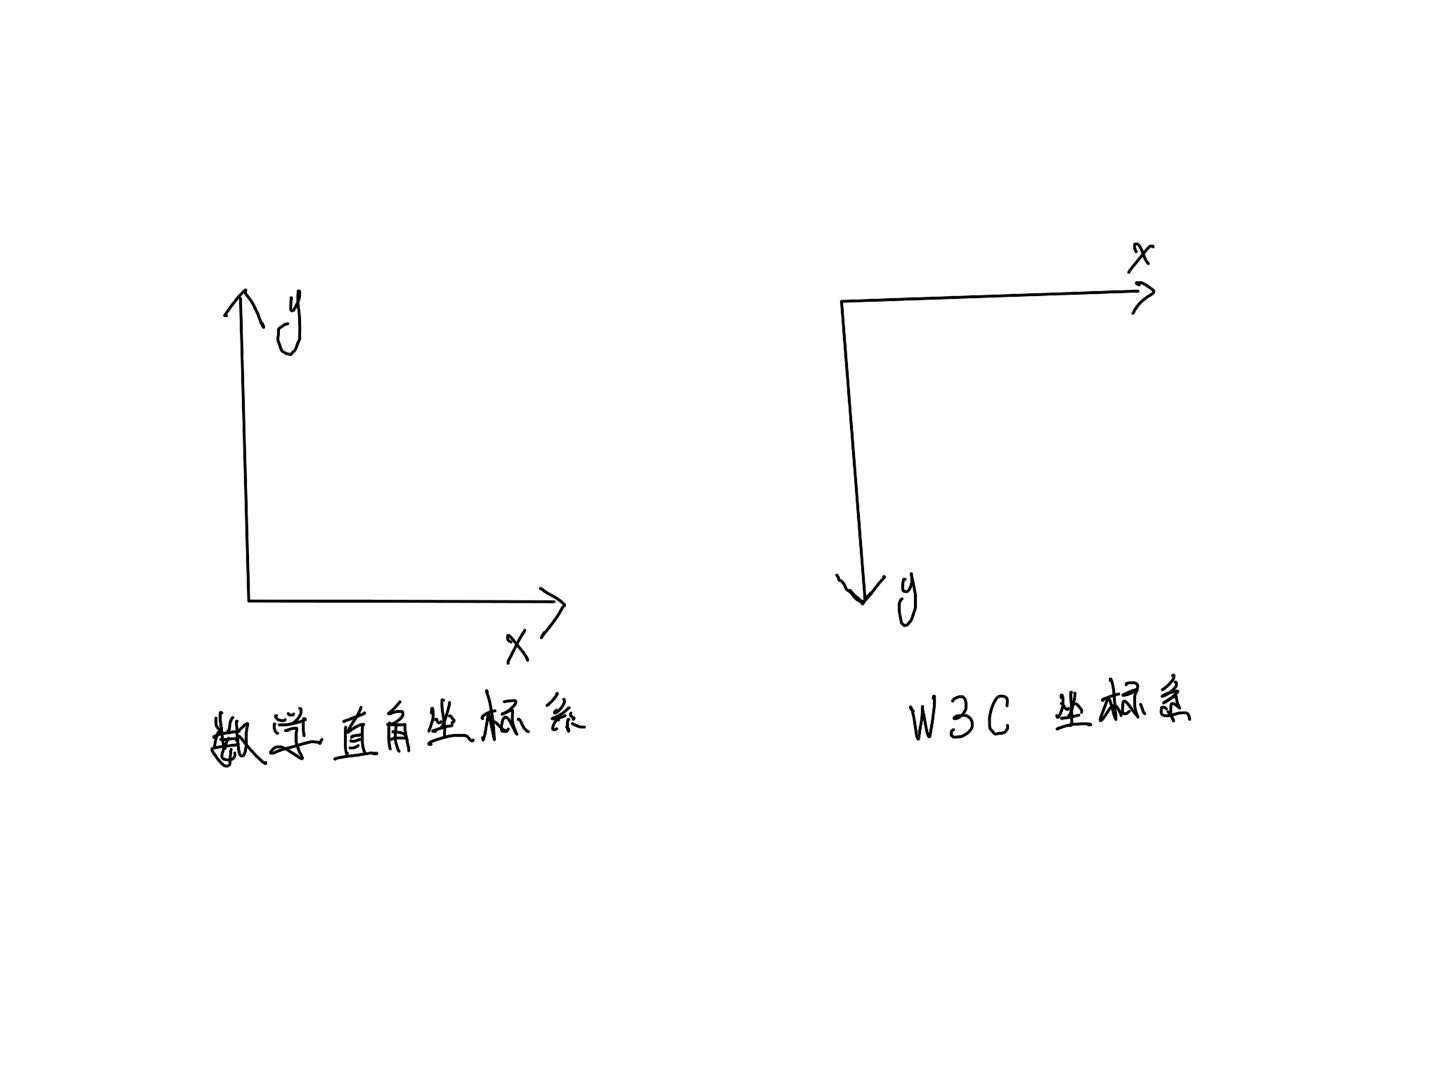 y
x
数学直角坐标系
x
y
W3C 坐标系